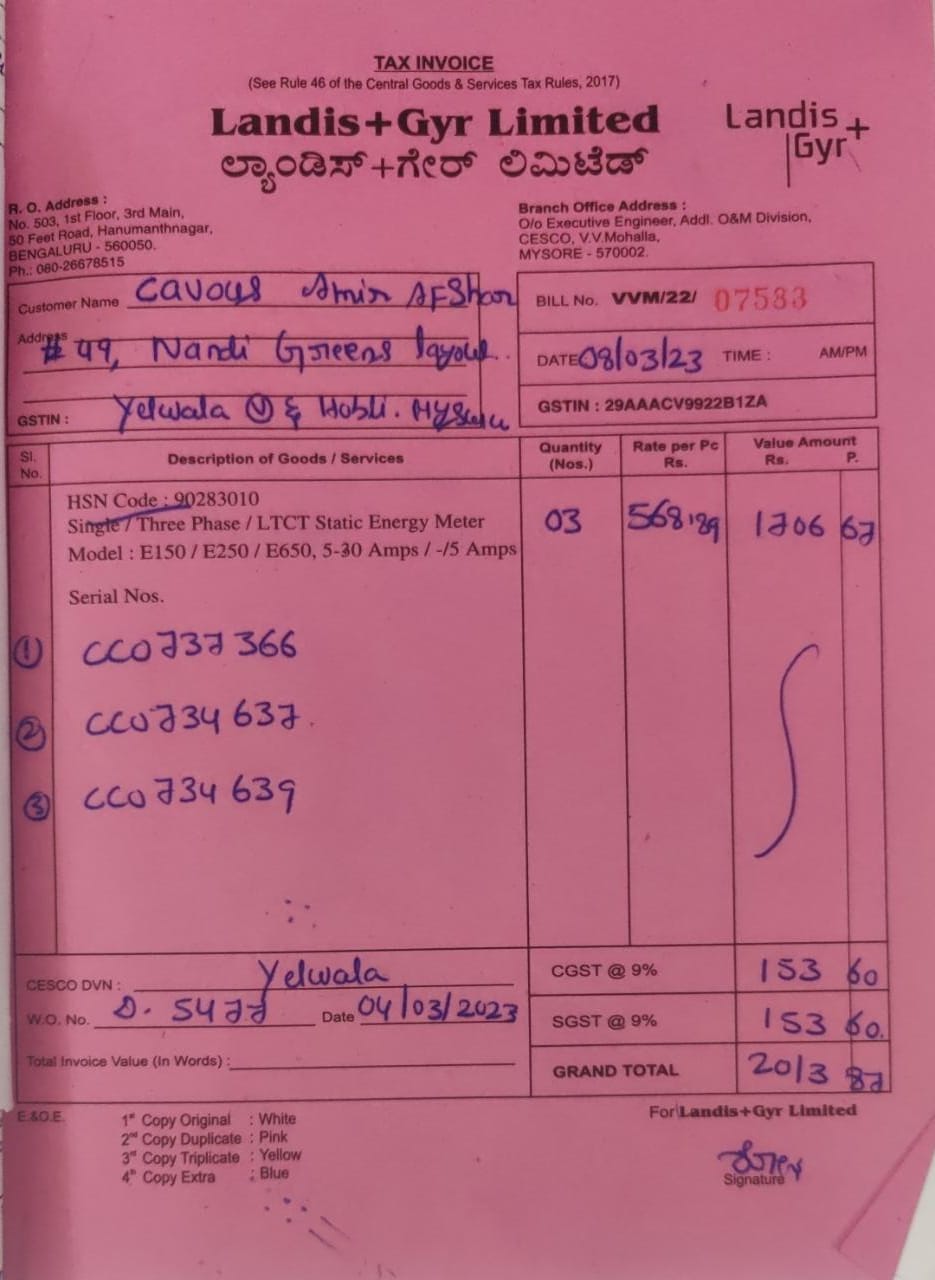 TAX INVOICE
(See Rule 46 of the Central Goods & Services Tax Rules, 2017)
Landis+Gyr Limited
ಲ್ಯಾಂಡಿಸ್+ಗೇರ್ ಲಿಮಿಟೆಡ್
Landis
Gyr+
R. O. Address :
No. 503, 1st Floor, 3rd Main,
50 Feet Road, Hanumanthnagar,
BENGALURU - 560050.
Ph.: 080-26678515
Branch Office Address :
O/o Executive Engineer, Addl. O&M Division,
CESCO, V.V.Mohalla,
MYSORE - 570002.
Customer Name Cavous Amin AFShar
Address # 49, Nandi Greens layout..
GSTIN : Yelwala (V) & Hobli.
BILL No. VVM/22/ 07583
DATE 08/03/23 TIME : AM/PM
GSTIN : 29AAACV9922B1ZA
Sl. No. Description of Goods / Services Quantity (Nos.) Rate per Pc Rs. Value Amount Rs. P.
HSN Code : 90283010
Single / Three Phase / LTCT Static Energy Meter 03 568.89 1706 67
Model : E150 / E250 / E650, 5-30 Amps / -/5 Amps
Serial Nos.
1 CC0737366
2 CC0734637.
3 CC0734639
CESCO DVN : Yelwala
W.O. No. D. 5477 Date 04/03/2023
Total Invoice Value (In Words) :
CGST @ 9% 153 60
SGST @ 9% 153 60.
GRAND TOTAL 2013 87
E.&O.E.
1st Copy Original : White
2nd Copy Duplicate : Pink
3rd Copy Triplicate : Yellow
4th Copy Extra : Blue
For Landis+Gyr Limited
Signature